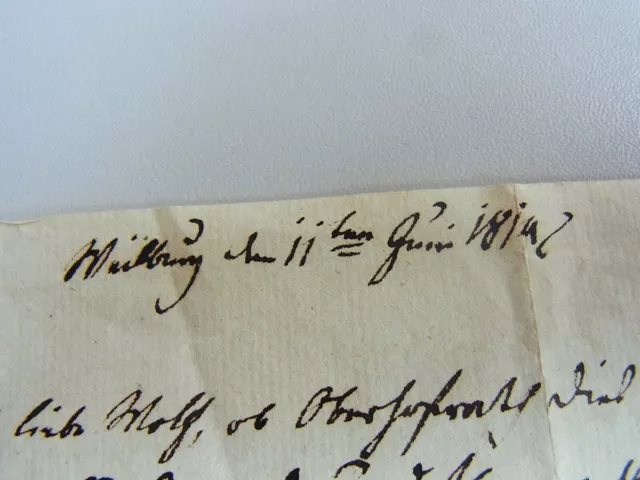 Weilburg den 11ten Juni 181
liebe Wolf, ob Oberhofrath Diel